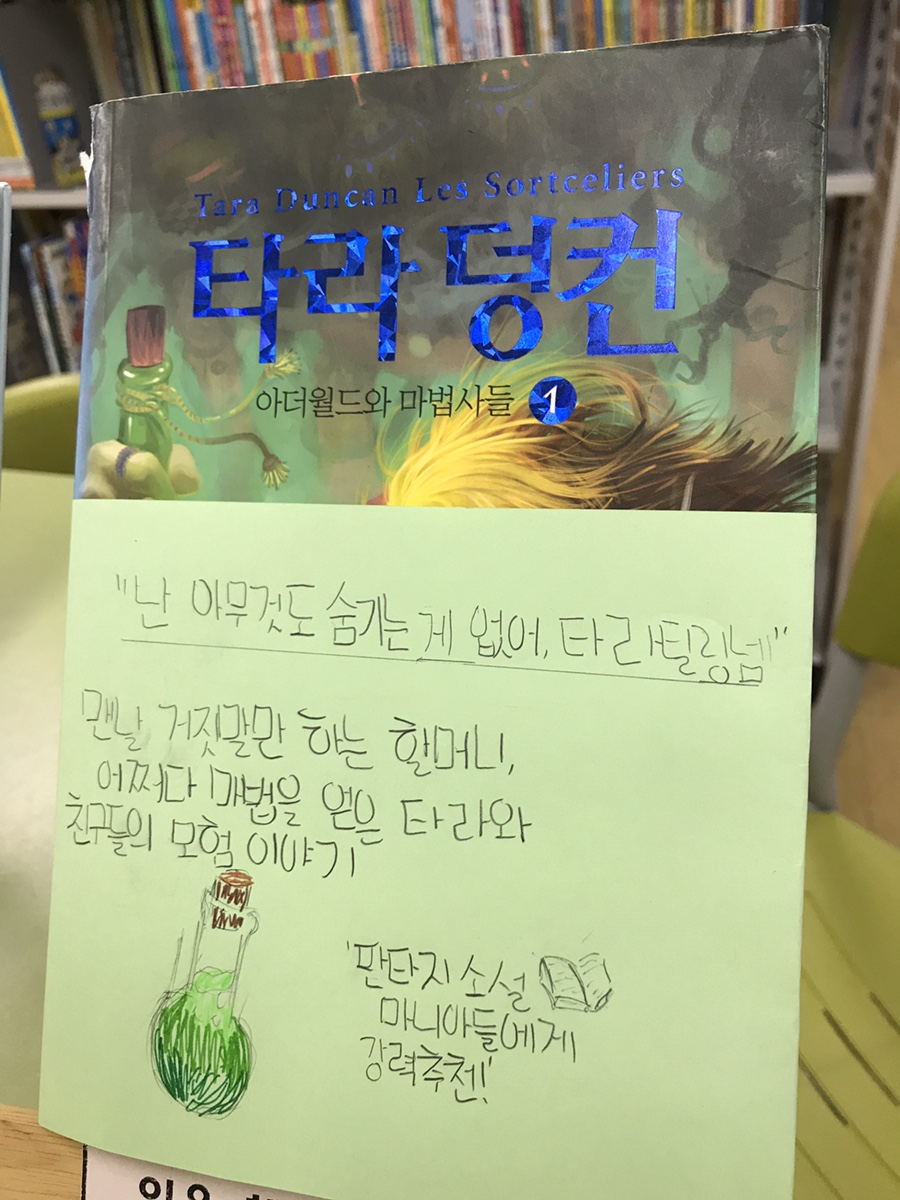 Tara Duncan Les Sortceliers
타라 덩컨
아더월드와 마법사들 1
"난 아무것도 숨기는 게 없어, 타라틸랑넴"
맨날 거짓말만 하는 할머니,
어쩌다 마법을 얻은 타라와
친구들의 모험 이야기
'판타지 소설
마니아들에게
강력추천!'